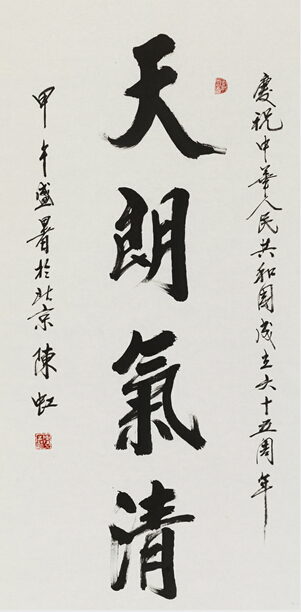 慶祝中華人民共和國成立六十五周年
天朗氣清
甲午盛暑於北京陳虹